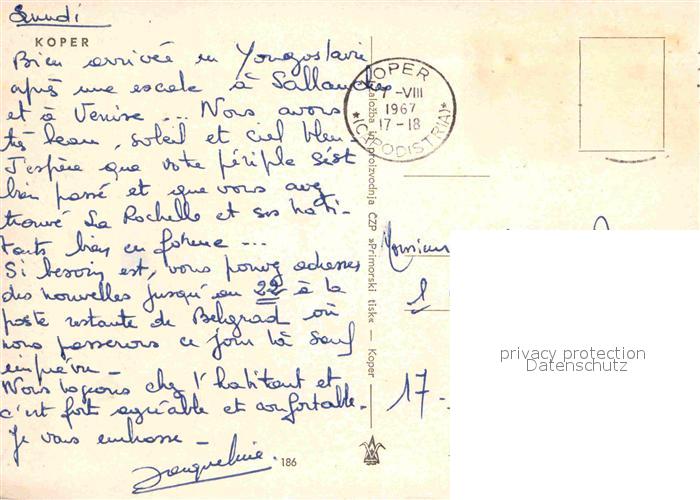 Lundi
KOPER
Bien arrivée en Yougoslavie
après une escale à Sallanches
et à Venise ... Nous avons
très beau, soleil et ciel bleu.
J'espère que votre périple s'est
bien passé et que vous avez
trouvé La Rochelle et ses habi-
tants bien en forme ...
Si besoin est, vous pouvez adresser
des nouvelles jusqu'au 22 à la
poste restante de Belgrad où
nous passerons ce jour là sauf
imprévu -
Nous logeons chez l'habitant et
c'est fort agréable et confortable.
Je vous embrasse -
Jacqueline.
186
Založba in proizvodnja ČZP »Primorski tisk« — Koper
KOPER
7 -VIII
1967
17-18
*(CAPODISTRIA)*
Monsieur
17-
privacy protection
Datenschutz